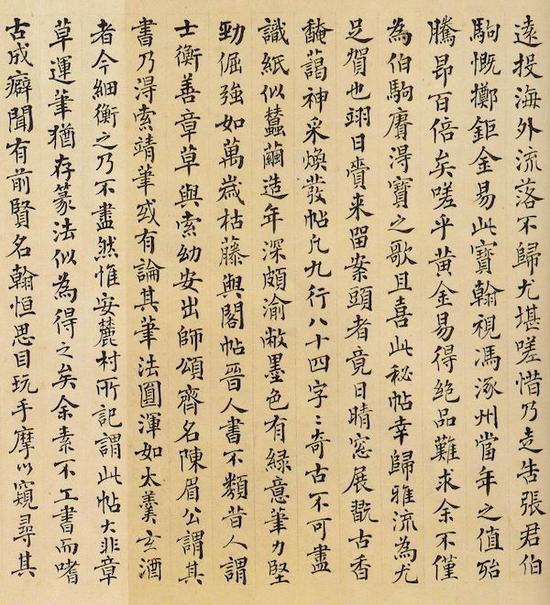 遠投海外流落不歸尤堪嗟惜乃走告張君伯
駒慨擲鉅金易此寶翰視馮涿州當年之值殆
騰昻百倍矣嗟乎黃金易得絕品難求余不僅
為伯駒賡得寶之歌且喜此秘帖幸歸雅流為尤
足賀也翊日賫来留案頭者竟日晴窓展翫古香
馣藹神采煥發帖凡九行八十四字〻奇古不可盡
識紙似蠶繭造年深頗渝敝墨色有綠意筆力堅
勁倔強如萬歲枯藤與閣帖晉人書不類昔人謂
士衡善章草與索幼安出師頌齊名陳眉公謂其
書乃淂索靖筆或有論其筆法圓渾如太羹玄酒
者今細衡之乃不盡然惟安麓村所記謂此帖大非章
草運筆猶存篆法似為得之矣余素不工書而嗜
古成癖聞有前賢名翰恒思目玩手摩以窺尋其